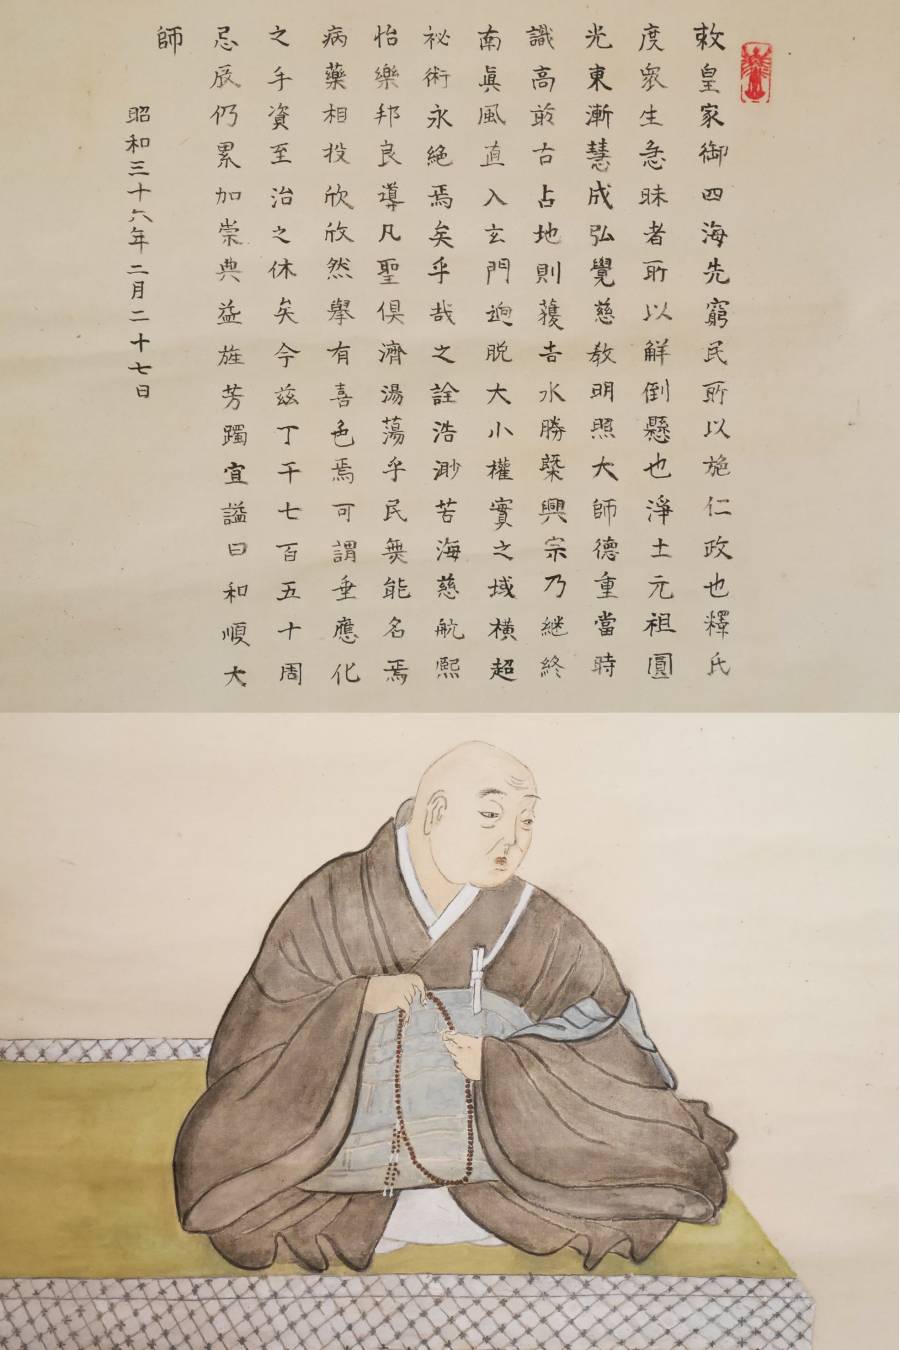 敕皇家御四海先窮民所以施仁政也釋氏
度衆生急昧者所以解倒懸也淨土元祖圓
光東漸慧成弘覺慈教明照大師德重當時
識高前古占地則獲吉水勝槩興宗乃繼終
南眞風直入玄門逈脱大小權實之域橫超
祕術永絕焉矣乎哉之詮浩渺苦海慈航熙
怡樂邦良導凡聖倶濟湯蕩乎民無能名焉
病藥相投欣欣然擧有喜色焉可謂垂應化
之手資至治之休矣今茲丁千七百五十周
忌辰仍累加崇典益旌芳躅宜謚曰和順大
師
昭和三十六年二月二十七日